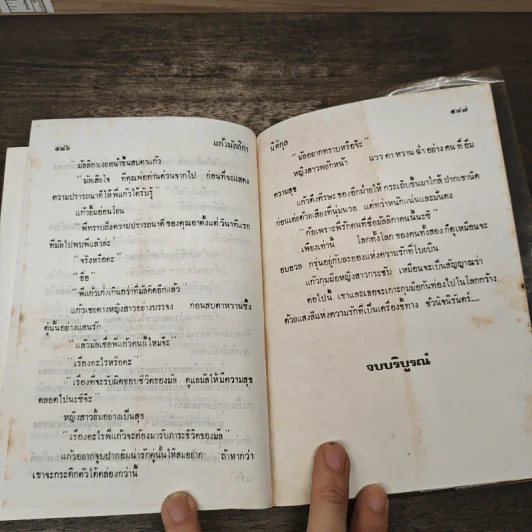 ๕๘๖
แก้วมัลลิกา
มัลลิกาเงยหน้าขึ้นสบตาแก้ว
"มัลเสียใจ ที่คุณพ่อท่านด่วนจากไป ก่อนที่จะแสดง
ความปรารถนาดีให้พี่แก้วได้รับรู้
แก้วยิ้มอ่อนโยน
"พี่ทราบถึงความปรารถนาดีของคุณอาตั้งแต่วินาทีแรก
ที่มัลไปพบพี่แล้วล่ะ
"จริงหรือคะ"
"ฮื่อ"
"พี่แก้วเก่งเกินกว่าที่มัลคิดอีกแล้ว"
แก้วเชยคางหญิงสาวอย่างบรรจง ก่อนสบตาหวานซึ้ง
คู่นั้นอย่างแสนรัก
"แล้วมัลเชื่อพี่แก้วคนนี้ไหมจ๊ะ"
"เรื่องอะไรหรือคะ"
"เรื่องที่จะรับผิดชอบชีวิตของมัล ดูแลมัลให้มีความสุข
ตลอดไปนะซีจ๊ะ"
หญิงสาวยิ้มอย่างเป็นสุข
"เรื่องอะไรพี่แก้วจะต้องมารับภาระชีวิตของมัล"
แก้วอยากจูบปากอิ่มน่ารักคู่นั้นให้สมอยาก ถ้าหากว่า
เขาจะกระดิกตัวได้คล่องกว่านี้
นิติกุล
๕๘๗
"มัลอยากทราบหรือจ๊ะ"
หญิงสาวพยักหน้า แววตาหวานฉ่ำอย่างคนที่อิ่ม
ความสุข
แก้วดึงศีรษะของอีกฝ่ายให้กระเถิบขึ้นมาใกล้ปากเขานิด
ก่อนเอ่ยด้วยเสียงที่นุ่มนวล แต่ทว่าหนักแน่นและมั่นคง
"ก้อเพราะพี่รักคนที่ชื่อมัลลิกาคนนั้นนะซี"
เพียงเท่านี้ โลกทั้งโลกของคนทั้งสองก็ดูเหมือนจะ
อบอวล กรุ่นอยู่กับละอองแห่งความรักที่โบยบิน
แก้วกุมมือหญิงสาวกระชับ เหมือนจะเป็นสัญญาณว่า
ต่อไปนี้ เขาและเธอจะเกาะกุมมือกันท่องไปในโลกกว้าง
ด้วยแสงสีแห่งความรักที่เป็นเครื่องชี้ทาง ชั่วนิจนิรันดร์....
จบบริบูรณ์